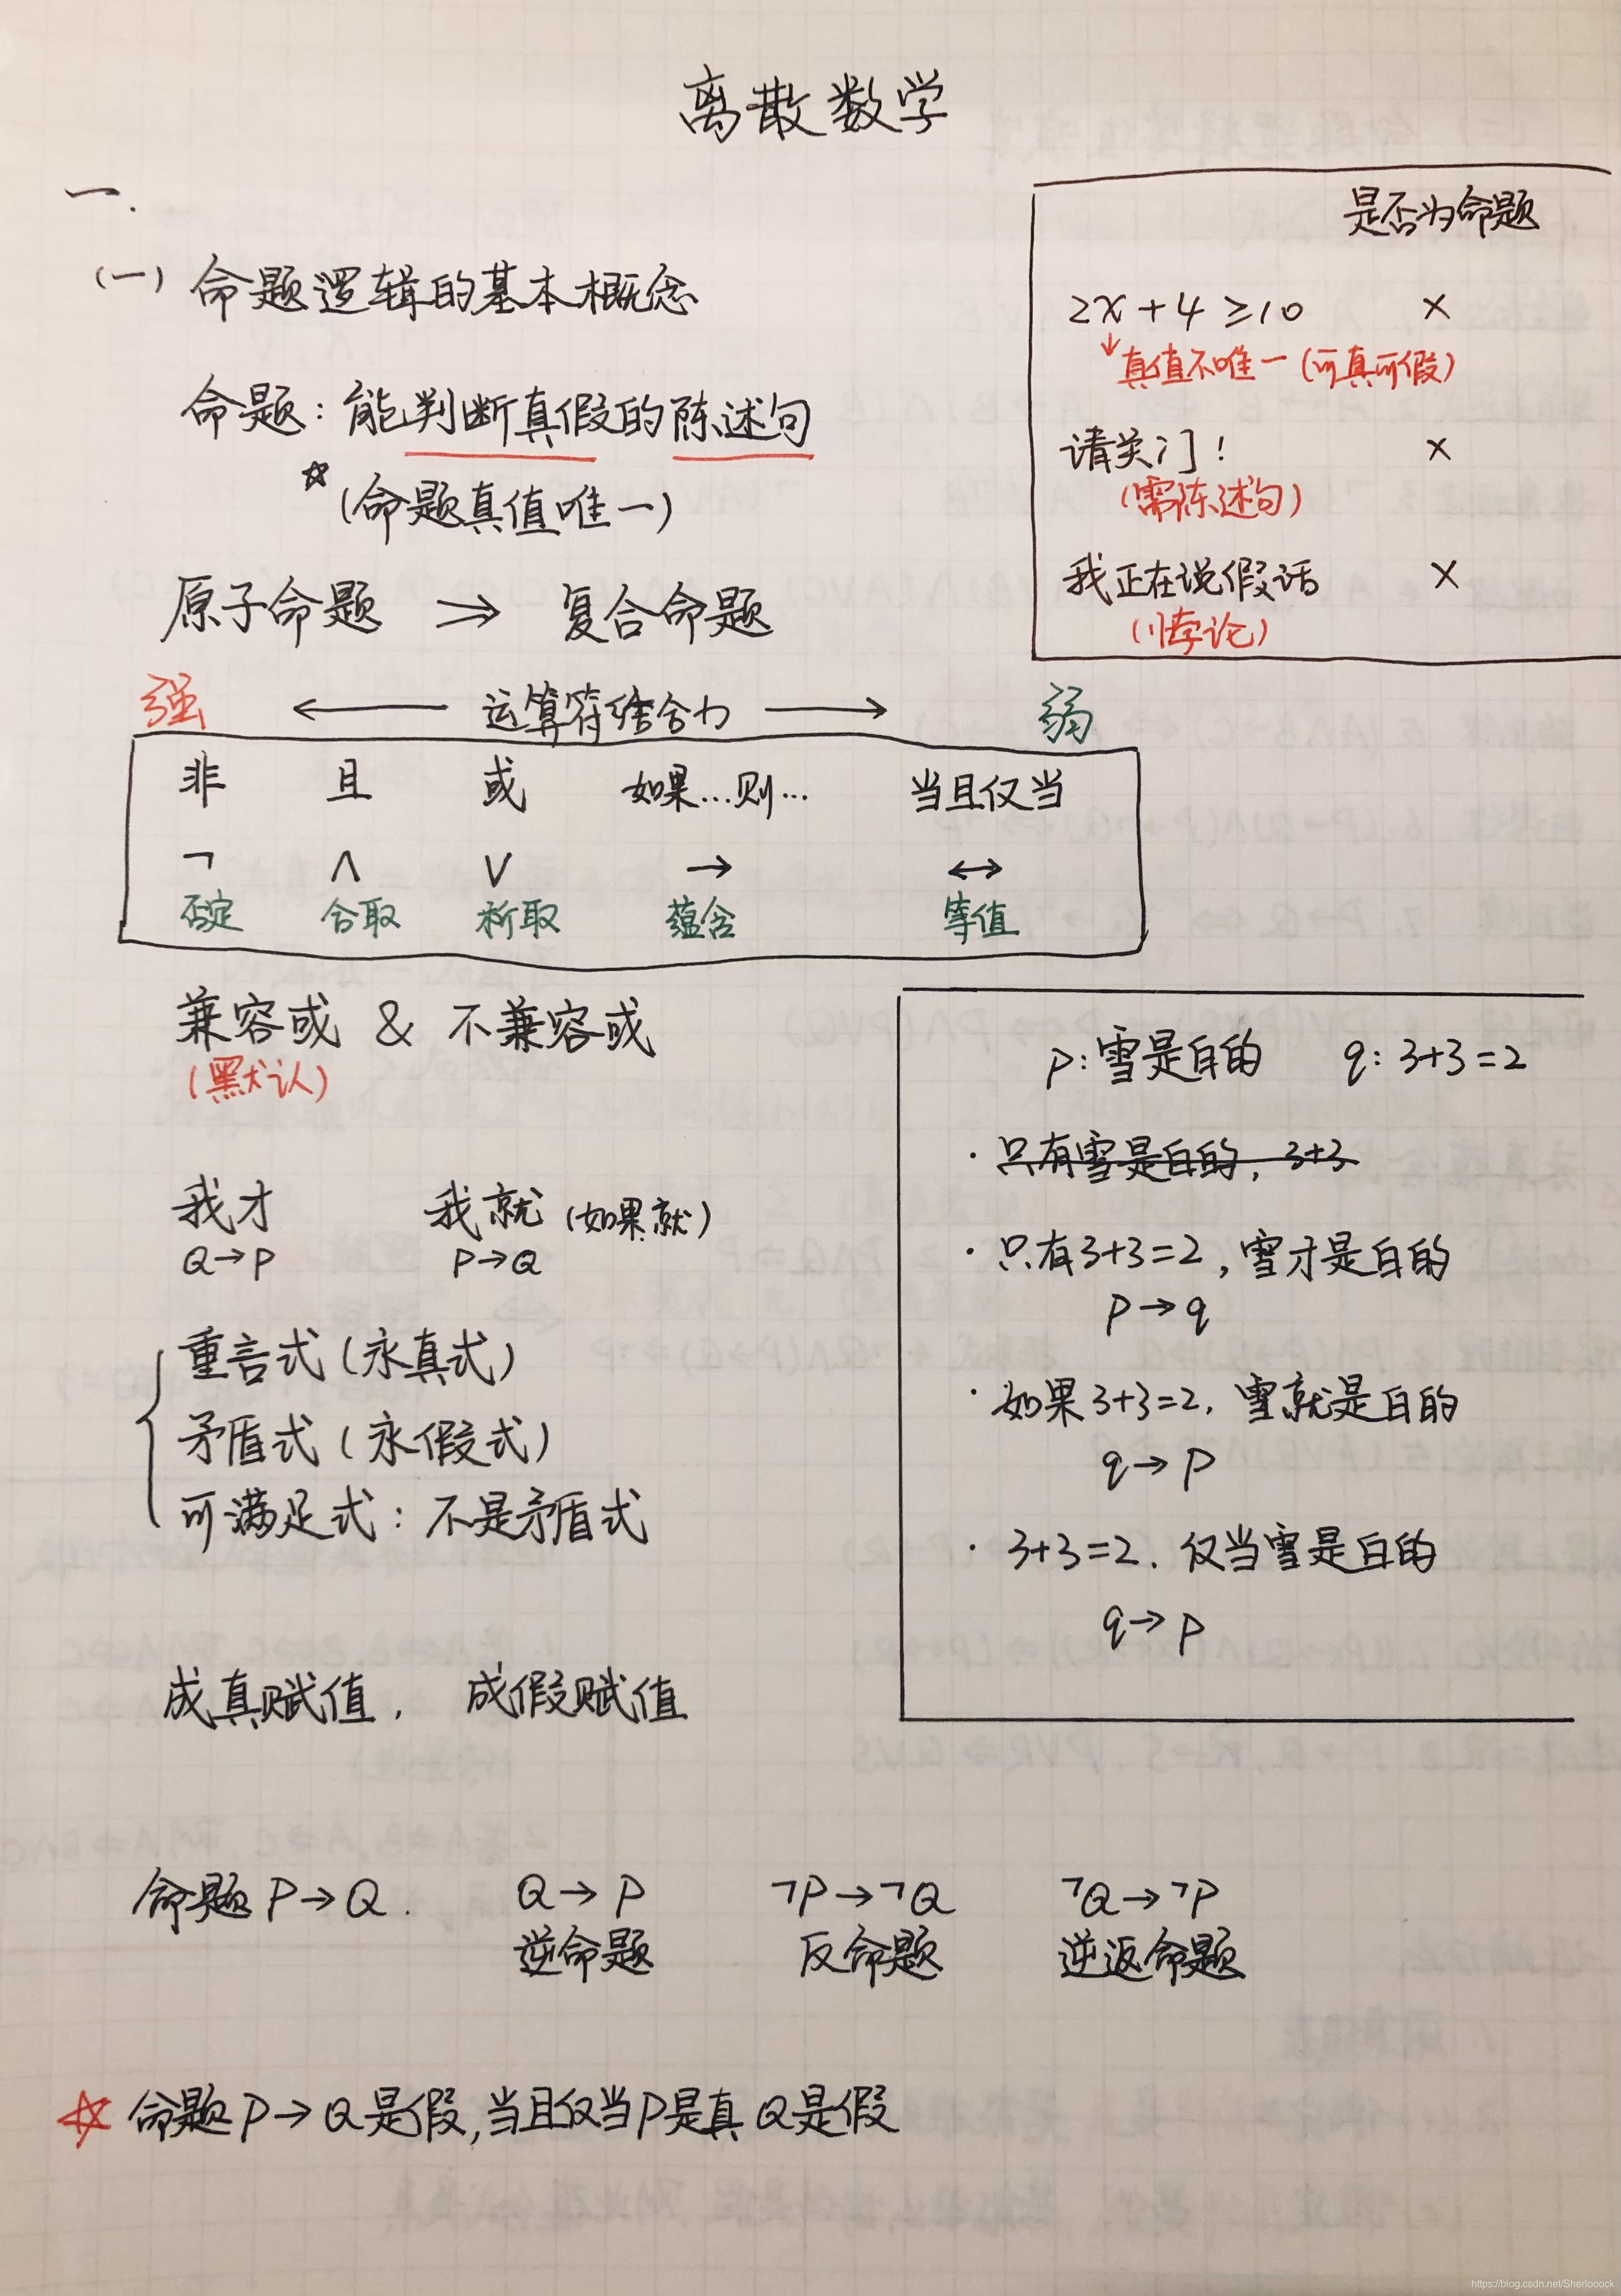 离散数学
一.
(一) 命题逻辑的基本概念
命题：能判断真假的陈述句
☆(命题真值唯一)
原子命题 ⇒ 复合命题
是否为命题
2x+4≥10 ×
↓真值不唯一(可真可假)
请关门！ ×
(需陈述句)
我正在说假话 ×
(悖论)
强 ← 运算符结合力 → 弱
非 且 或 如果…则… 当且仅当
¬ ∧ ∨ → ↔
否定 合取 析取 蕴含 等值
兼容或 & 不兼容或
(默认)
我才 我就(如果就)
Q→P P→Q
重言式(永真式)
矛盾式(永假式)
可满足式：不是矛盾式
成真赋值， 成假赋值
p:雪是白的 q:3+3=2
·只有雪是白的，3+3
·只有3+3=2,雪才是白的
p→q
·如果3+3=2,雪就是白的
q→p
·3+3=2.仅当雪是白的
q→p
命题P→Q. Q→P ¬P→¬Q ¬Q→¬P
逆命题 反命题 逆返命题
☆命题P→Q是假,当且仅当P是真Q是假
https://blog.csdn.net/Sherlooock